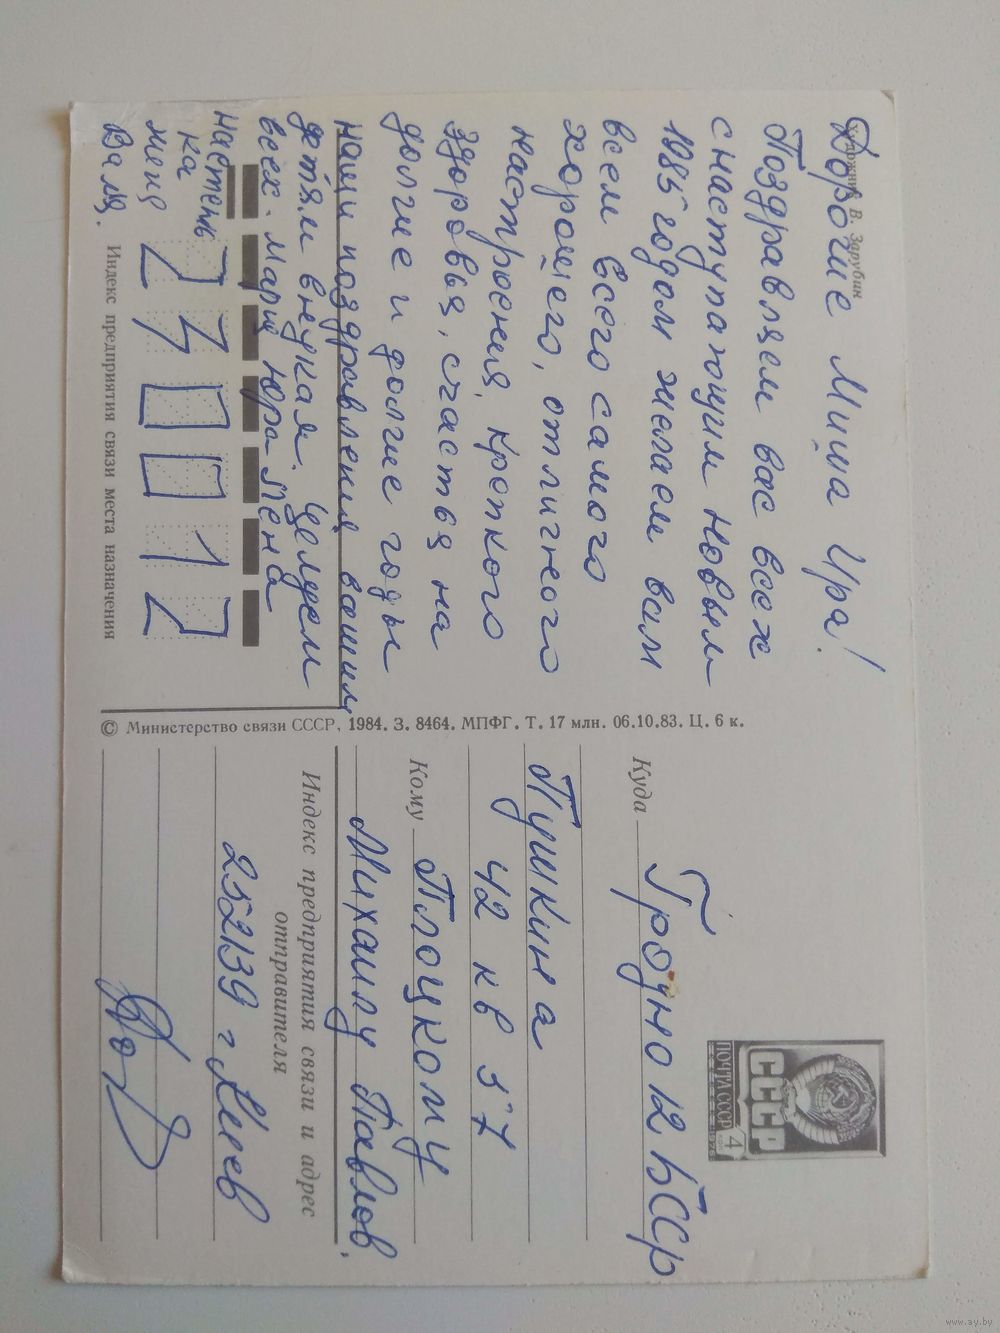 Художник В. Зарубин
Дорогие Миша Ира!
Поздравляем вас всех
с наступающим новым
1985 годом желаем вам
всем всего самого
хорошего, отличного
настроения, крепкого
здоровья, счастья на
долгие и долгие годы
наши поздравления вашим
детям внукам. Целуем
всех. Мария Юра Лена
Настень
ка
Валя.
Индекс предприятия связи места назначения
© Министерство связи СССР, 1984. З. 8464. МПФГ. Т. 17 млн. 06.10.83. Ц. 6 к.
ПОЧТА СССР
4
СССР
Куда Гродно 12 БССР
Пушкина
42 кв 57
Кому Плоцкому
Михаилу Павлов.
Индекс предприятия связи и адрес
отправителя
252139 г Киев
230012
www.ay.by